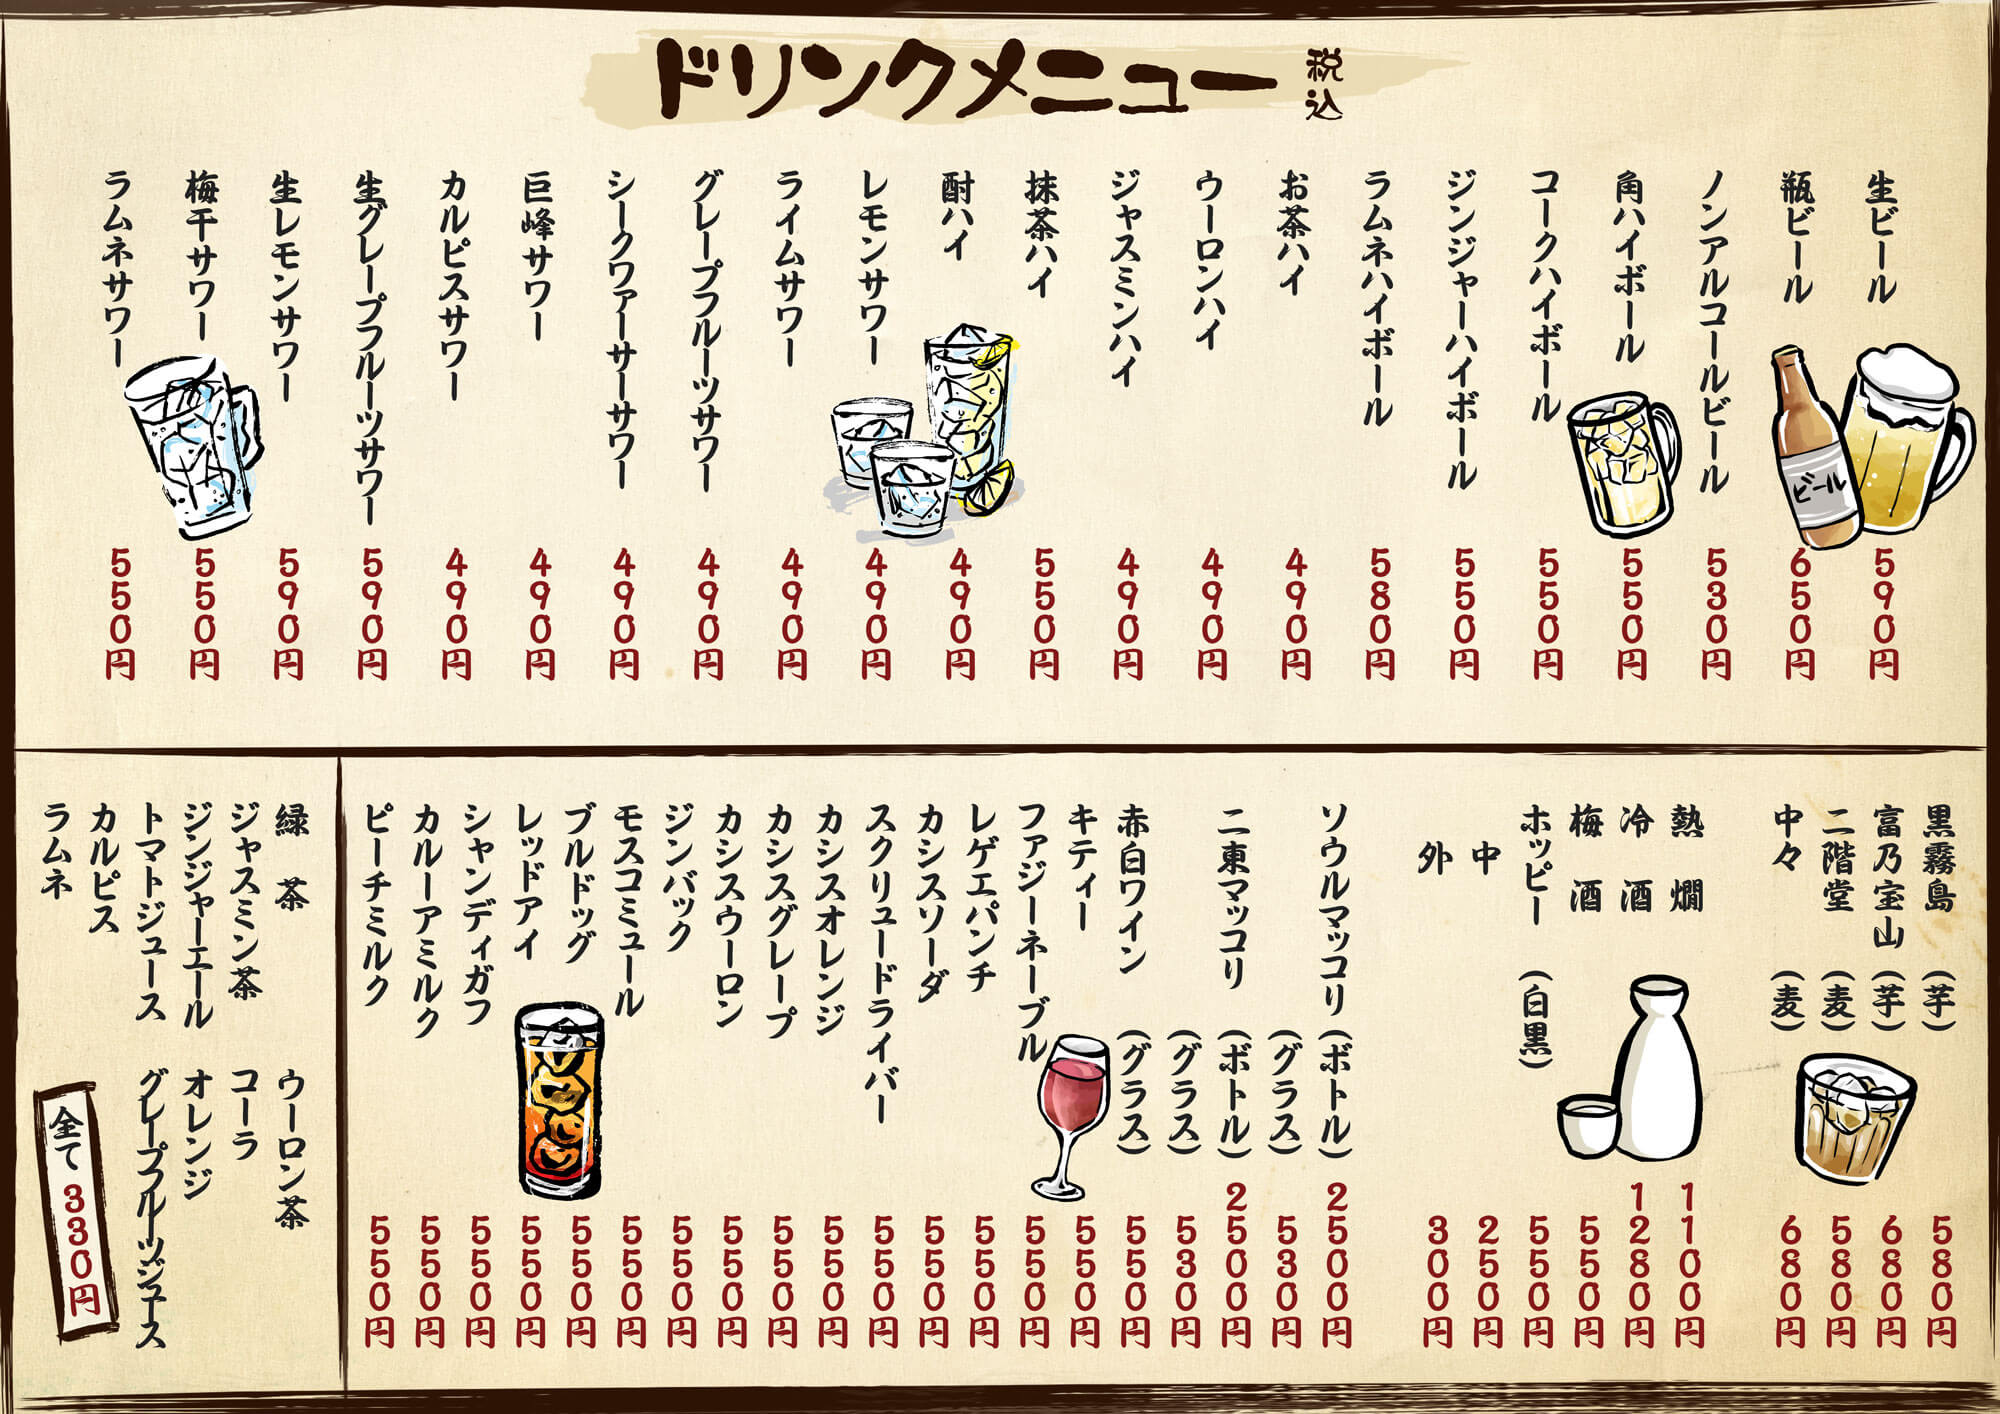 ドリンクメニュー 税込
生ビール 590円
瓶ビール 650円
ノンアルコールビール 530円
角ハイボール 550円
コークハイボール 550円
ジンジャーハイボール 550円
ラムネハイボール 580円
お茶ハイ 490円
ウーロンハイ 490円
ジャスミンハイ 490円
抹茶ハイ 550円
酎ハイ 490円
レモンサワー 490円
ライムサワー 490円
グレープフルーツサワー 490円
シークワァーサーサワー 490円
巨峰サワー 490円
カルピスサワー 490円
生グレープフルーツサワー 590円
生レモンサワー 590円
梅干サワー 550円
ラムネサワー 550円
ビール
黒霧島（芋） 580円
富乃宝山（芋） 680円
二階堂（麦） 580円
中々（麦） 680円
熱燗 1100円
冷酒 1280円
梅酒 550円
ホッピー（白黒） 550円
中 250円
外 300円
ソウルマッコリ（ボトル） 2500円
（グラス） 530円
二東マッコリ（ボトル） 2500円
（グラス） 530円
赤白ワイン（グラス） 550円
キティー 550円
ファジーネーブル 550円
レゲエパンチ 550円
カシスソーダ 550円
スクリュードライバー 550円
カシスオレンジ 550円
カシスグレープ 550円
カシスウーロン 550円
ジンバック 550円
モスコミュール 550円
ブルドッグ 550円
レッドアイ 550円
シャンディガフ 550円
カルーアミルク 550円
ピーチミルク 550円
緑茶 ウーロン茶
ジャスミン茶 コーラ
ジンジャーエール オレンジ
トマトジュース グレープフルーツジュース
カルピス
ラムネ
全て330円